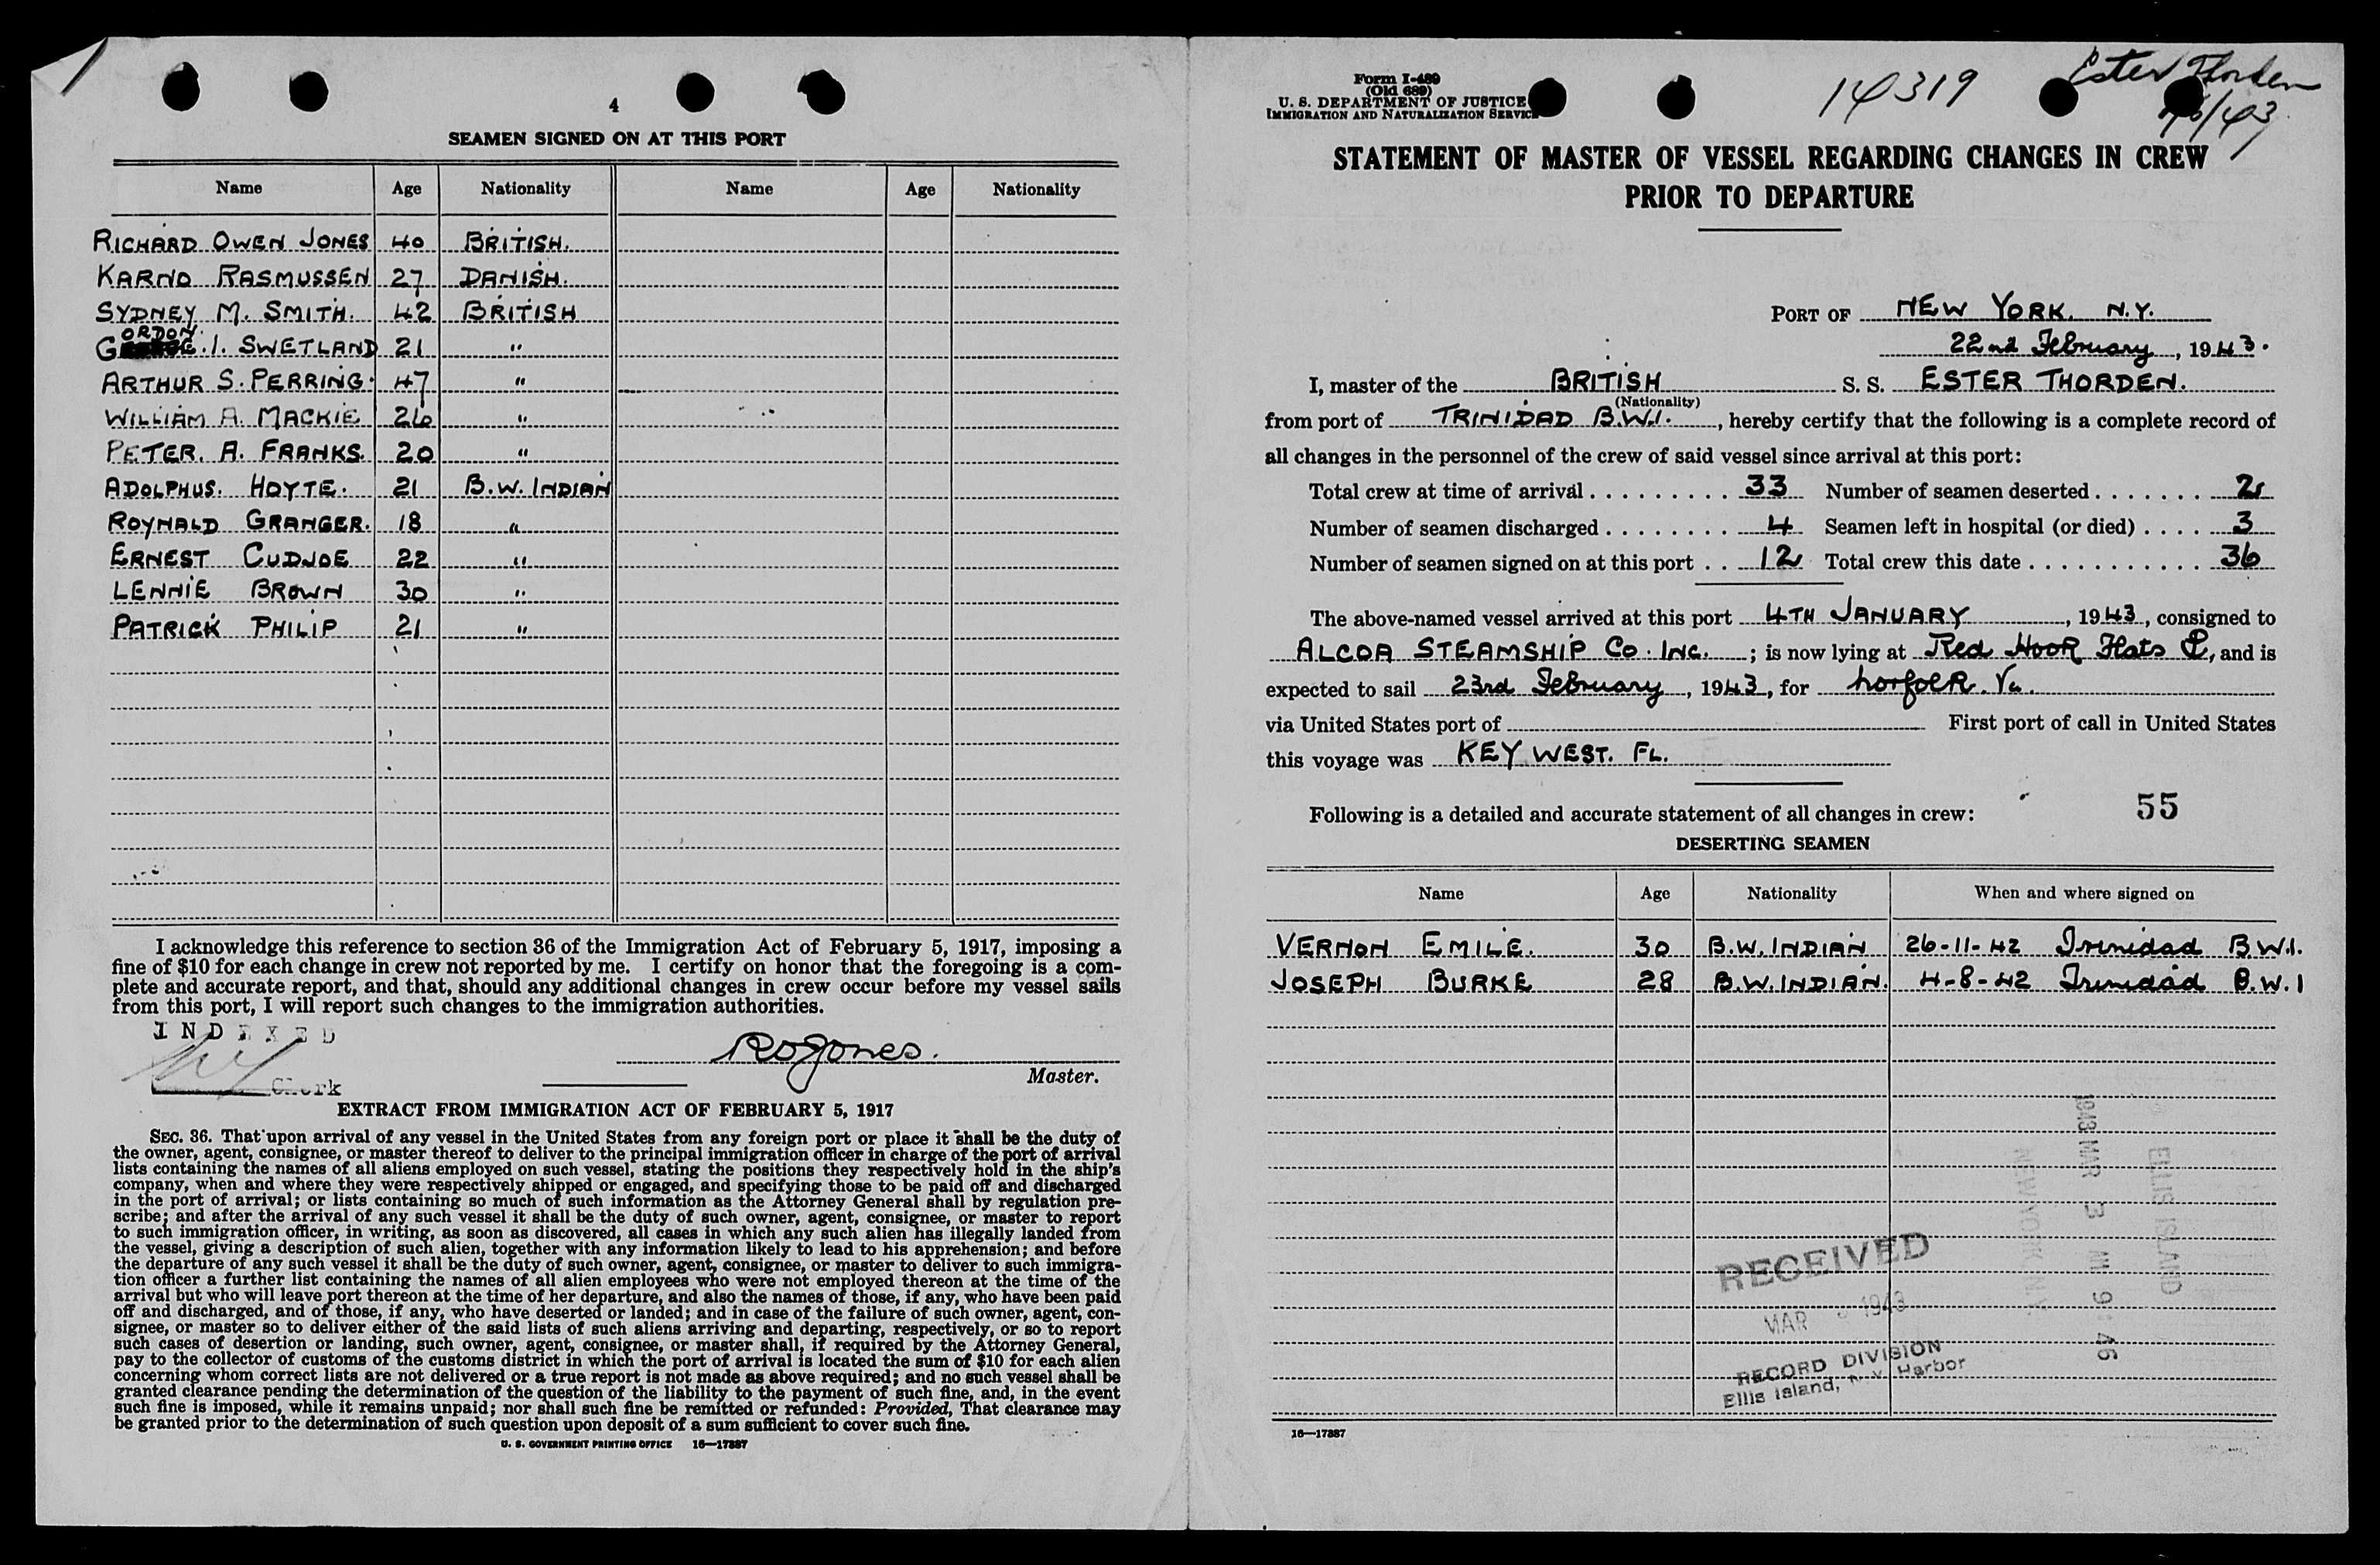 4
SEAMEN SIGNED ON AT THIS PORT
Name Age Nationality Name Age Nationality
RICHARD OWEN JONES 40 BRITISH.
KARNO RASMUSSEN 27 DANISH.
SYDNEY M. SMITH. 42 BRITISH
ORDON
G .I. SWETLAND 21 "
ARTHUR S. PERRING. 47 "
WILLIAM A. MACKIE 26 "
PETER. A. FRANKS. 20 "
ADOLPHUS. HOYTE. 21 B.W. INDIAN
ROYNALD GRANGER. 18 "
ERNEST CUDJOE 22 "
LENNIE BROWN 30 "
PATRICK PHILIP 21 "
I acknowledge this reference to section 36 of the Immigration Act of February 5, 1917, imposing a
fine of $10 for each change in crew not reported by me. I certify on honor that the foregoing is a com-
plete and accurate report, and that, should any additional changes in crew occur before my vessel sails
from this port, I will report such changes to the immigration authorities.
INDEXED
ROJones.
Clerk
Master.
EXTRACT FROM IMMIGRATION ACT OF FEBRUARY 5, 1917
SEC. 36. That upon arrival of any vessel in the United States from any foreign port or place it shall be the duty of
the owner, agent, consignee, or master thereof to deliver to the principal immigration officer in charge of the port of arrival
lists containing the names of all aliens employed on such vessel, stating the positions they respectively hold in the ship's
company, when and where they were respectively shipped or engaged, and specifying those to be paid off and discharged
in the port of arrival; or lists containing so much of such information as the Attorney General shall by regulation pre-
scribe; and after the arrival of any such vessel it shall be the duty of such owner, agent, consignee, or master to report
to such immigration officer, in writing, as soon as discovered, all cases in which any such alien has illegally landed from
the vessel, giving a description of such alien, together with any information likely to lead to his apprehension; and before
the departure of any such vessel it shall be the duty of such owner, agent, consignee, or master to deliver to such immigra-
tion officer a further list containing the names of all alien employees who were not employed thereon at the time of the
arrival but who will leave port thereon at the time of her departure, and also the names of those, if any, who have been paid
off and discharged, and of those, if any, who have deserted or landed; and in case of the failure of such owner, agent, con-
signee, or master so to deliver either of the said lists of such aliens arriving and departing, respectively, or so to report
such cases of desertion or landing, such owner, agent, consignee, or master shall, if required by the Attorney General,
pay to the collector of customs of the customs district in which the port of arrival is located the sum of $10 for each alien
concerning whom correct lists are not delivered or a true report is not made as above required; and no such vessel shall be
granted clearance pending the determination of the question of the liability to the payment of such fine, and, in the event
such fine is imposed, while it remains unpaid; nor shall such fine be remitted or refunded: Provided, That clearance may
be granted prior to the determination of such question upon deposit of a sum sufficient to cover such fine.
U. S. GOVERNMENT PRINTING OFFICE 16—17387
Form I-489
(Old 689)
U. S. DEPARTMENT OF JUSTICE
IMMIGRATION AND NATURALIZATION SERVICE
14319
Ester Thorden
STATEMENT OF MASTER OF VESSEL REGARDING CHANGES IN CREW
PRIOR TO DEPARTURE
PORT OF NEW YORK. N.Y.
22nd February, 1943.
I, master of the BRITISH S. S. ESTER THORDEN.
(Nationality)
from port of TRINIDAD B.W.I., hereby certify that the following is a complete record of
all changes in the personnel of the crew of said vessel since arrival at this port:
Total crew at time of arrival . . . . . . . . . 33 Number of seamen deserted . . . . . . . 2
Number of seamen discharged . . . . . . . . 4 Seamen left in hospital (or died) . . . . 3
Number of seamen signed on at this port . . 12 Total crew this date . . . . . . . . . . . 36
The above-named vessel arrived at this port 4TH JANUARY, 1943, consigned to
ALCOA STEAMSHIP Co. INC.; is now lying at Red Hook Flats, and is
expected to sail 23rd February, 1943, for Norfolk. Va.
via United States port of First port of call in United States
this voyage was KEY WEST. FL.
Following is a detailed and accurate statement of all changes in crew:
55
DESERTING SEAMEN
Name Age Nationality When and where signed on
VERNON EMILE. 30 B.W. INDIAN 26-11-42 Trinidad B.W.I.
JOSEPH BURKE 28 B.W. INDIAN. 4-8-42 Trinidad B.W.I
ELLIS ISLAND
1943 MAR 3 AM 9:46
NEW YORK N.Y.
RECEIVED
MAR 1943
RECORD DIVISION
Ellis Island, N.Y. Harbor
16—17387